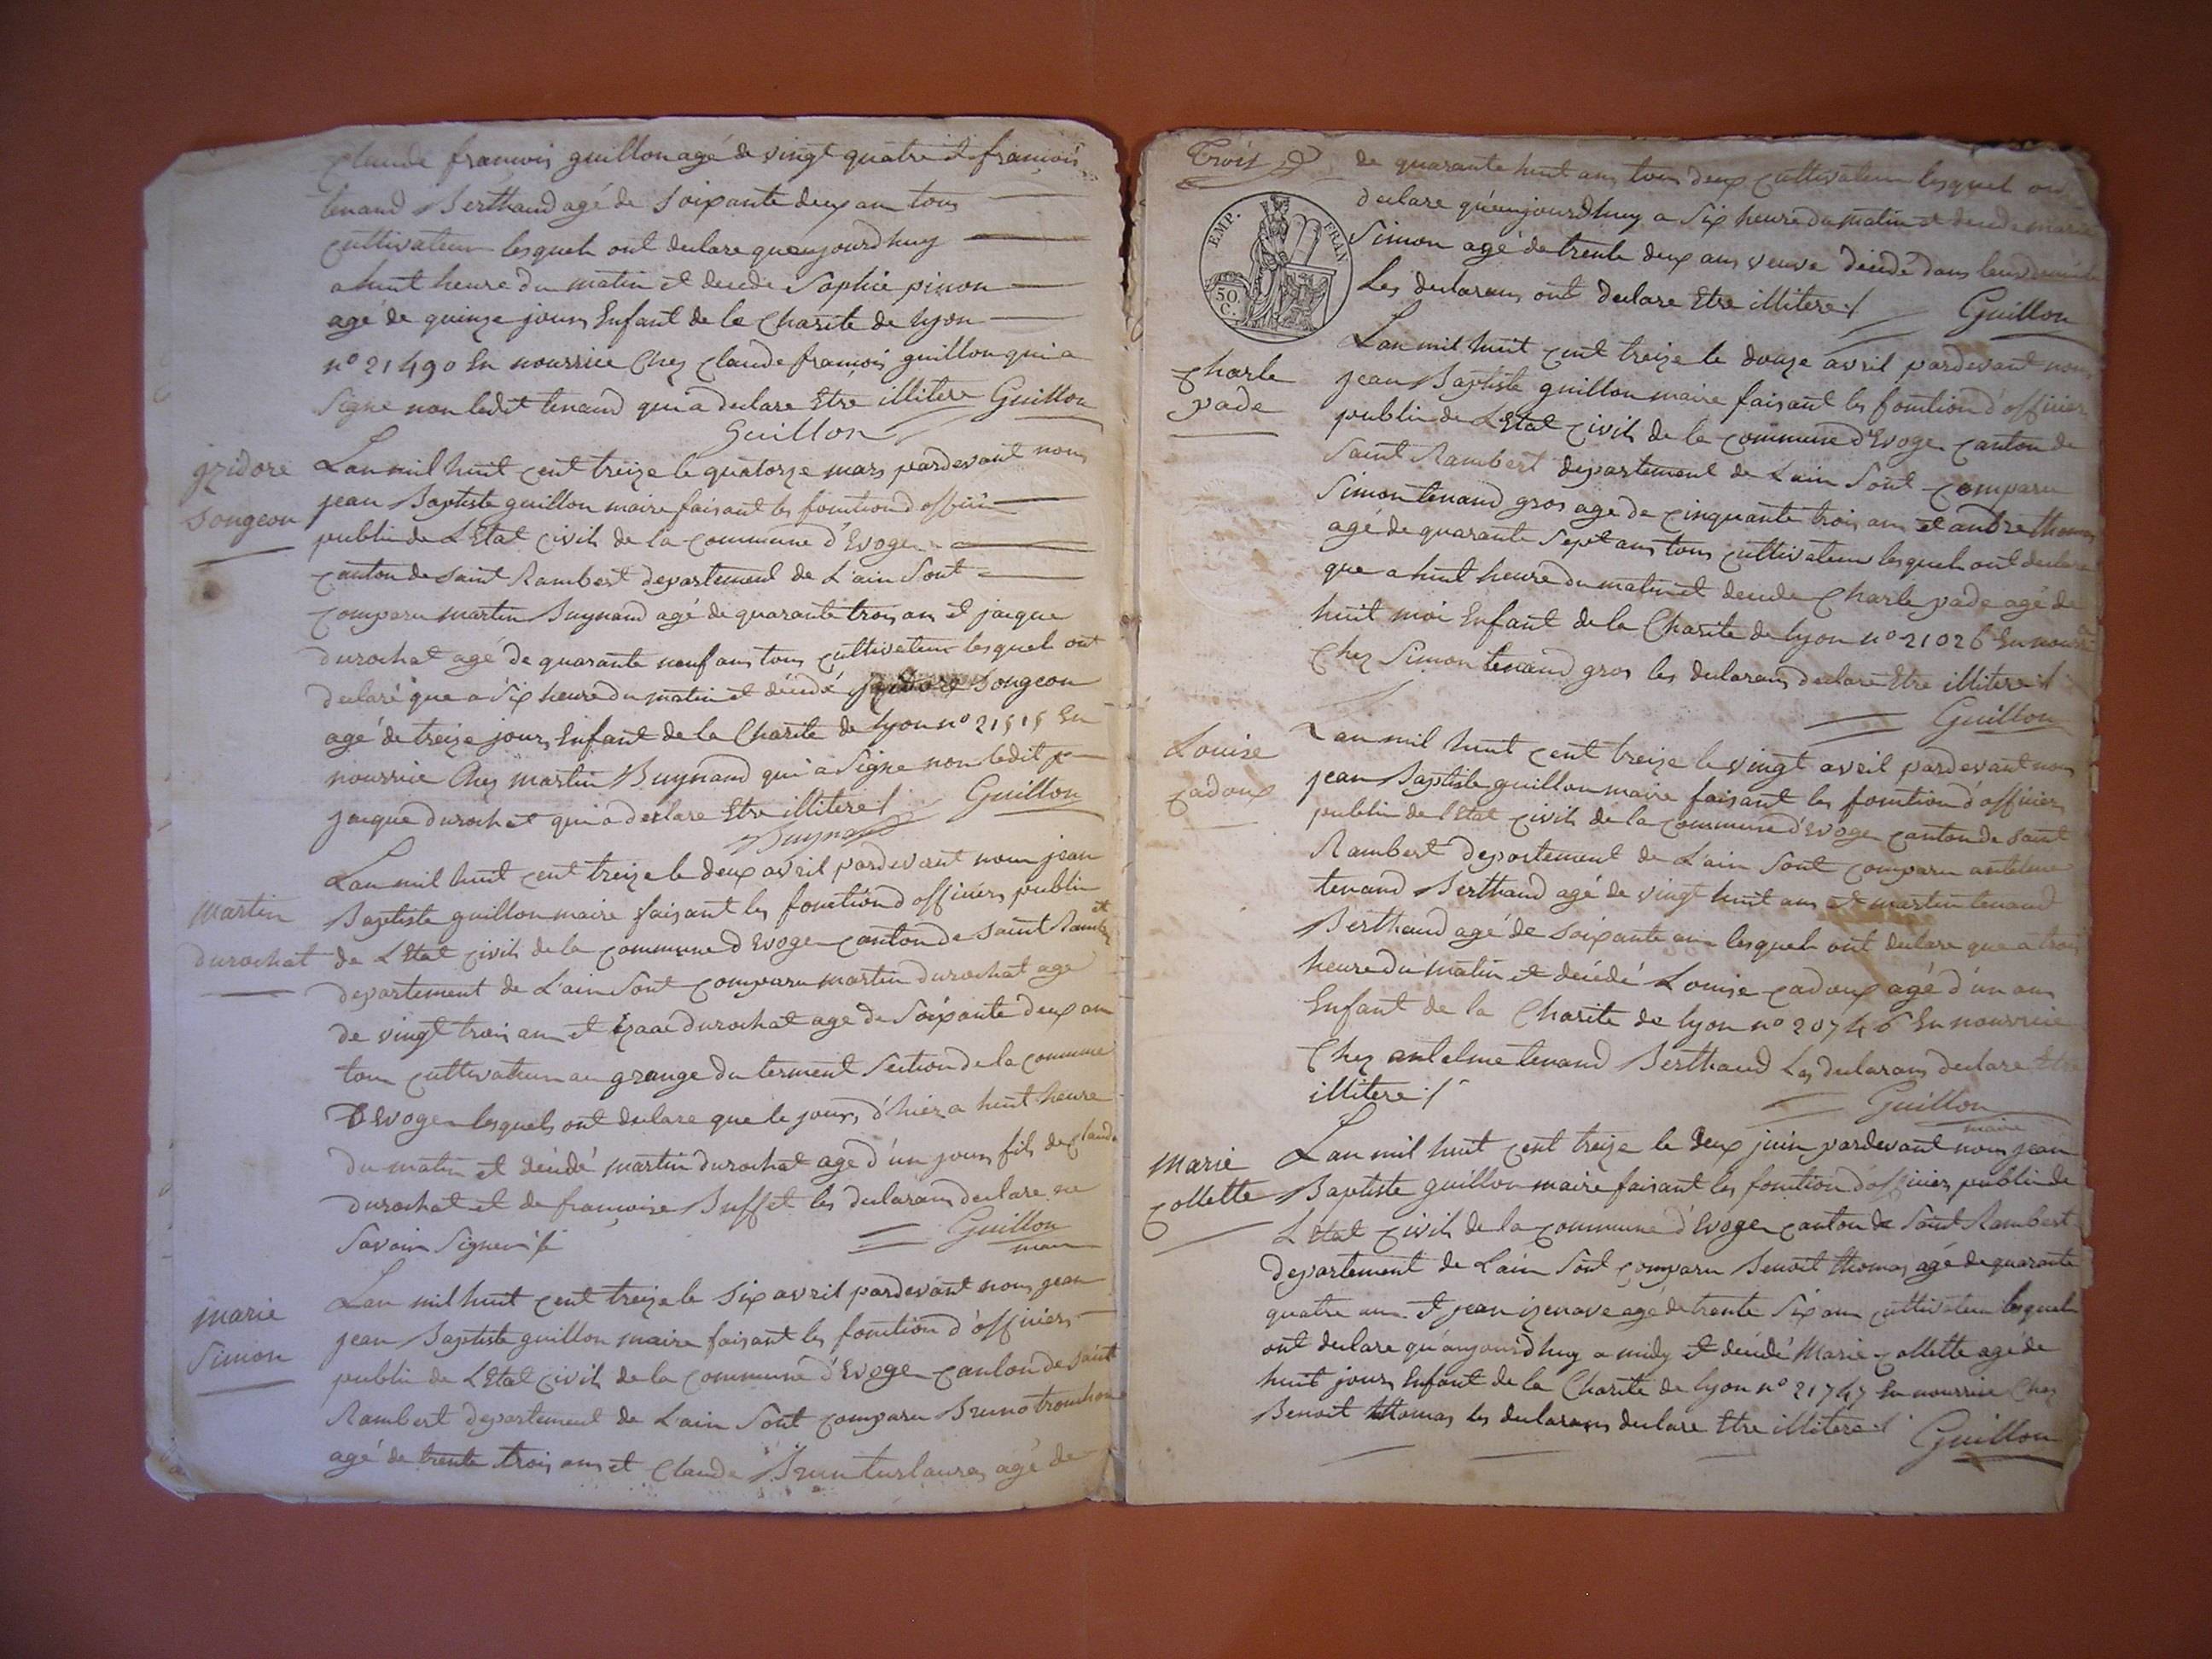 Claude francois guillon agé de vingt quatre et francois
tenand Berthaud agé de soixante deux an tous
cultivateur lesquels ont declare qu'aujourdhuy
a huit heure du matin et decede Sophie pinon
agé de quinze jours Enfant de la Charite de lyon
n° 21490 En nourrice Chez Claude francois guillon qui a
signe non ledit tenand qui a declare Etre illitere Guillon
Guillon
jzidore
songeon
Lan mil huit cent treize le quatorze mars pardevant nous
jean Baptiste guillon maire faisant les fonction d'officier
public de L'Etat Civil de la Commune d'Evoge
Canton de saint Rambert departement de L'ain Sont
Comparu martin Buynand agé de quarante trois ans et jacque
durochat agé de quarante neuf ans tous cultivateur lesquels ont
declaré que a six heure du matin et décédé jzidore songeon
agé de treize jours Enfant de la Charite de lyon n° 21515 En
nourrice Chez martin Buynand qui a signe non ledit
jacque durochat qui a declare Etre illitere / Guillon
Buynand
martin
durochat
Lan mil huit cent treize le deux avril pardevant nous jean
Baptiste guillon maire faisant les fonction d'officier public
de L'Etat Civil de la Commune d'Evoge Canton de saint Rambert
departement de L'ain Sont Comparu martin durochat age
de vingt trois ans et izaac durochat age de soixante deux ans
tous cultivateur au grange du terment Section de la Commune
d'Evoge lesquels ont declare que le jours d'hier a huit heure
du matin et décédé martin durochat age d'un jours fils de Claude
durochat et de francoise Buffet les declarans declare ne
savoir Signer / Guillon
maire
marie
simon
Lan mil huit cent treize le six avril pardevant nous jean
jean Baptiste guillon maire faisant les fonction d'officier
public de L'Etat Civil de la Commune d'Evoge Canton de saint
Rambert departement de L'ain Sont Comparu Bruno
agé de trente trois ans et Claude agé de
Trois
de quarante huit ans tous deux Cultivateur lesquels ont
declare qu'aujourdhuy a six heure du matin et decede marie
Simon agé de trente deux ans veuve décédé dans leur
Les declarans ont declare Etre illitere / Guillon
EMP. FRAN
50.
C.
Charle
pade
Lan mil huit cent treize le douze avril pardevant nous
jean Baptiste guillon maire faisant les fonction d'officier
public de L'Etat Civil de la Commune d'Evoge Canton de
saint Rambert departement de L'ain Sont Comparu
Simon tenand gros age de cinquante trois ans et andre thomas
agé de quarante Sept ans tous cultivateur lesquels ont declare
que a huit heure du matin et decede Charle pade agé de
huit moi Enfant de la Charite de lyon n° 21026 En nourrice
Chez Simon tenand gros les declarans declare Etre illitere /
Guillon
Louise
Cadoux
Lan mil huit cent treize le vingt avril pardevant nous
jean Baptiste guillon maire faisant les fonction d'officier
public de l'Etat Civil de la Commune d'Evoge Canton de saint
Rambert departement de L'ain Sont Comparu antelme
tenand Berthaud agé de vingt huit ans et martin tenand
Berthaud agé de soixante ans lesquels ont declare que a trois
heure du matin et décédé Louise Cadoux agé d'un ans
Enfant de la Charite de lyon n° 20746 En nourrice
Chez antelme tenand Berthaud Les declarans declare Etre
illitere / Guillon
maire
Marie
Collette
Lan mil huit cent treize le deux juin pardevant nous jean
Baptiste guillon maire faisant les fonction d'officier public de
L'Etat Civil de la Commune d'Evoge Canton de saint Rambert
departement de L'ain Sont Comparu Benoit thomas agé de quarante
quatre ans et jean izenave agé de trente six ans cultivateur lesquels
ont declare qu'aujourdhuy a midy et décédé Marie Collette agé de
huit jours Enfant de la Charite de lyon n° 21747 En nourrice Chez
Benoit thomas les declarans declare Etre illitere / Guillon